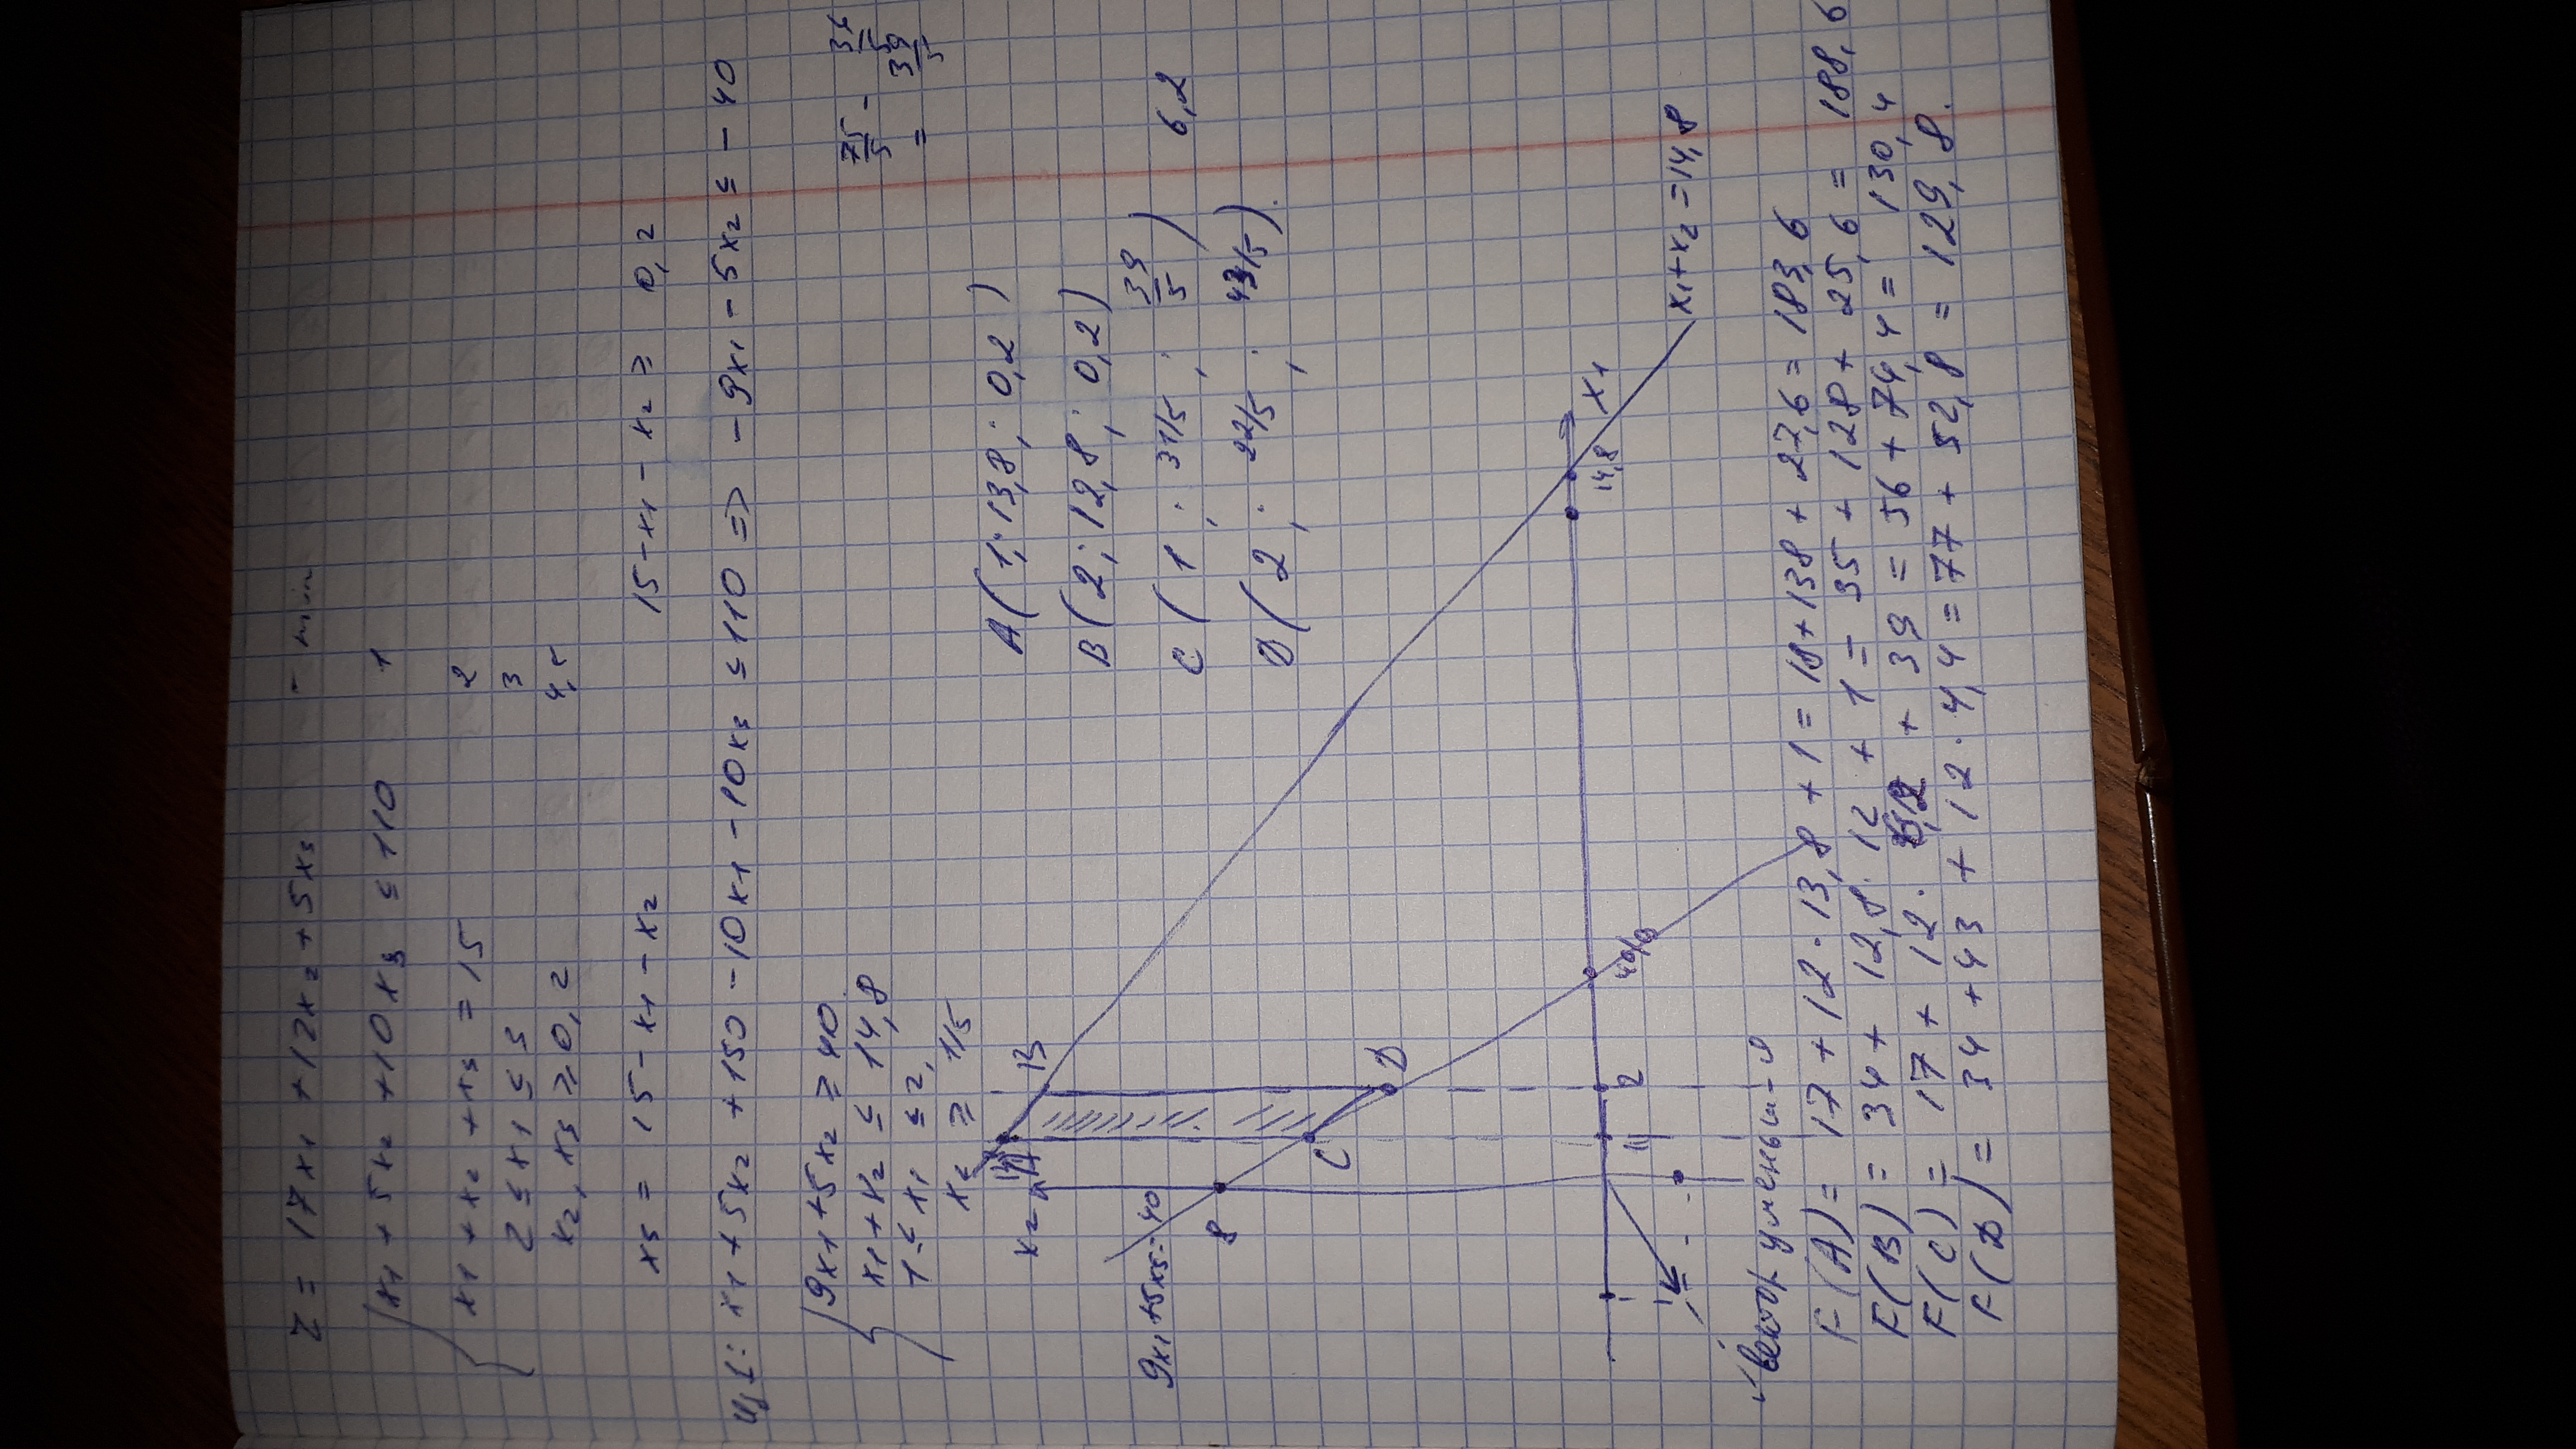 Z = 17x1 + 12x2 + 5x3 - min
x1 + 5x2 + 10x3 ≤ 110 1
x1 + x2 + x3 = 15 2
2 ≤ x1 ≤ 3 3
x2, x3 ≥ 0,2 4,5
x3 = 15 - x1 - x2 15 - x1 - x2 ≥ 0,2
Из 1: x1 + 5x2 + 150 - 10x1 - 10x3 ≤ 110 => -9x1 - 5x2 ≤ -40
9x1 + 5x2 ≥ 40
x1 + x2 ≤ 14,8
1 ≤ x1 ≤ 2,
x2 ≥ 1/5
75/5 -
= 39/5
x2 A B
A(1; 13,8; 0,2)
B(2; 12,8; 0,2)
9x1 + 5x2 = 40
C(1; 31/5; 39/5) 6,2
8
D(2; 22/5; 43/5).
C
D
1 2 40/9 14,8 x1
x1 + x2 = 14,8
Вектор уменьш-я
F(A) = 17 + 12·13,8 + 1 = 18 + 138 + 27,6 = 183,6
F(B) = 34 + 12,8·12 + 1 = 35 + 128 + 25,6 = 188,6
F(C) = 17 + 12· 6,2 + 39 = 56 + 74,4 = 130,4
F(D) = 34 + 43 + 12·4,4 = 77 + 52,8 = 129,8.